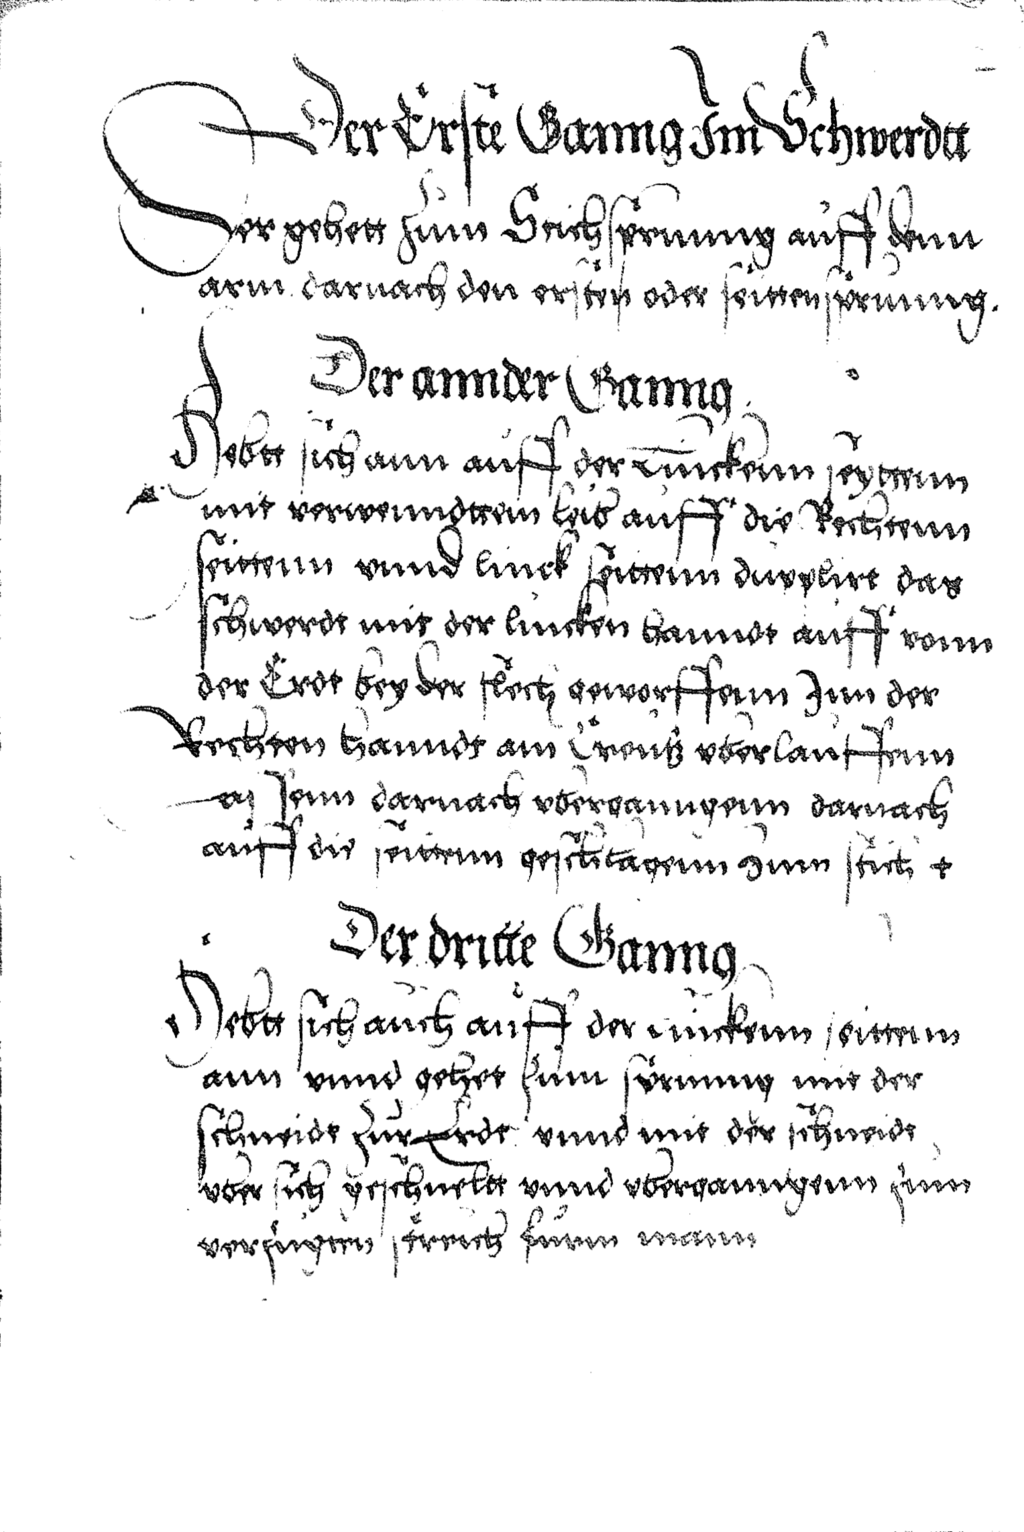 Der Erste Ganng Im Schwerdtt
Der gehett zum Streichsprunng auff denn
arm darnach den ersten oder seittensprunng.
Der annder Ganng
Hebtt sich ann auff der Linckenn seyttenn
mit verwenndttem leib auff die Rechtenn
seittenn vnnd linck seittenn duplirt das
schwerdt mit der lincken hanndt auff vonn
der Erdt bey der flech geworffenn Inn der
Rechten hanndt am Creutz vberlauffenn
darnach vberganngenn darnach
auff die seittenn geschlagenn zum stich
Der dritte Ganng
Hebtt sich auch auff der linckenn seittenn
ann vnnd gehet zum sprunng mit der
schneidt zur Erdt vnnd mit der schneidt
vber sich geschneltt vnnd vberganngenn zum
streich furm mann